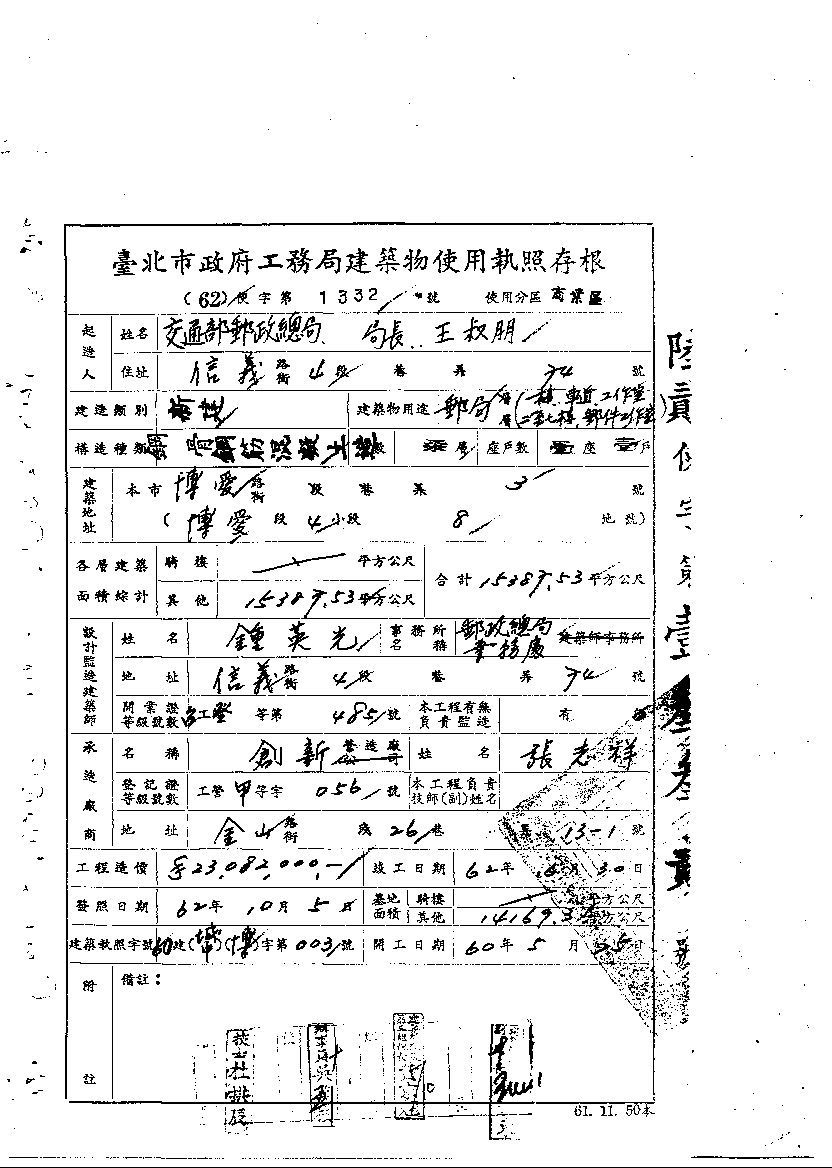 臺北市政府工務局建築物使用執照存根
(62)使字第 1332 號 使用分區 商業區
起造人 姓名 交通部郵政總局 局長 王叔朋
住址 信義路街 4段 巷 弄 74 號
建造類別 建築物用途 郵局 層層 (一樓 工作室 二至七樓 郵件工作室)
構造種類 層 座戶數 座 戶
建築地址 本市 博愛路街 段 巷 弄 3 號
(博愛段 4小段 8 地號)
各層建築面積綜計 騎樓 平方公尺 合計 15389.53平方公尺
其他 15389.53平方公尺
設計監造建築師 姓名 鍾英光 事務所名稱 郵政總局業務處 建築師事務所
地址 信義路街 4段 巷 弄 74 號
開業證等級號數 台工登 等第 485 號 本工程有無負責監造 有
承造廠商 名稱 創新營造廠公司 姓名 張志祥
登記證等級號數 工營甲等字 056 號 本工程負責技師(副)姓名
地址 金山路街 段 26巷 弄 13-1 號
工程造價 23,082,000,- 竣工日期 62年 月30日
發照日期 62年10月5日 基地面積 騎樓 平方公尺
其他 14169.3 平方公尺
建築執照字號 60建( )(博)字第003號 開工日期 60年5月 5日
附註 備註:
技士杜
61. 11. 50本
陸貳使字第壹叁叁貳號